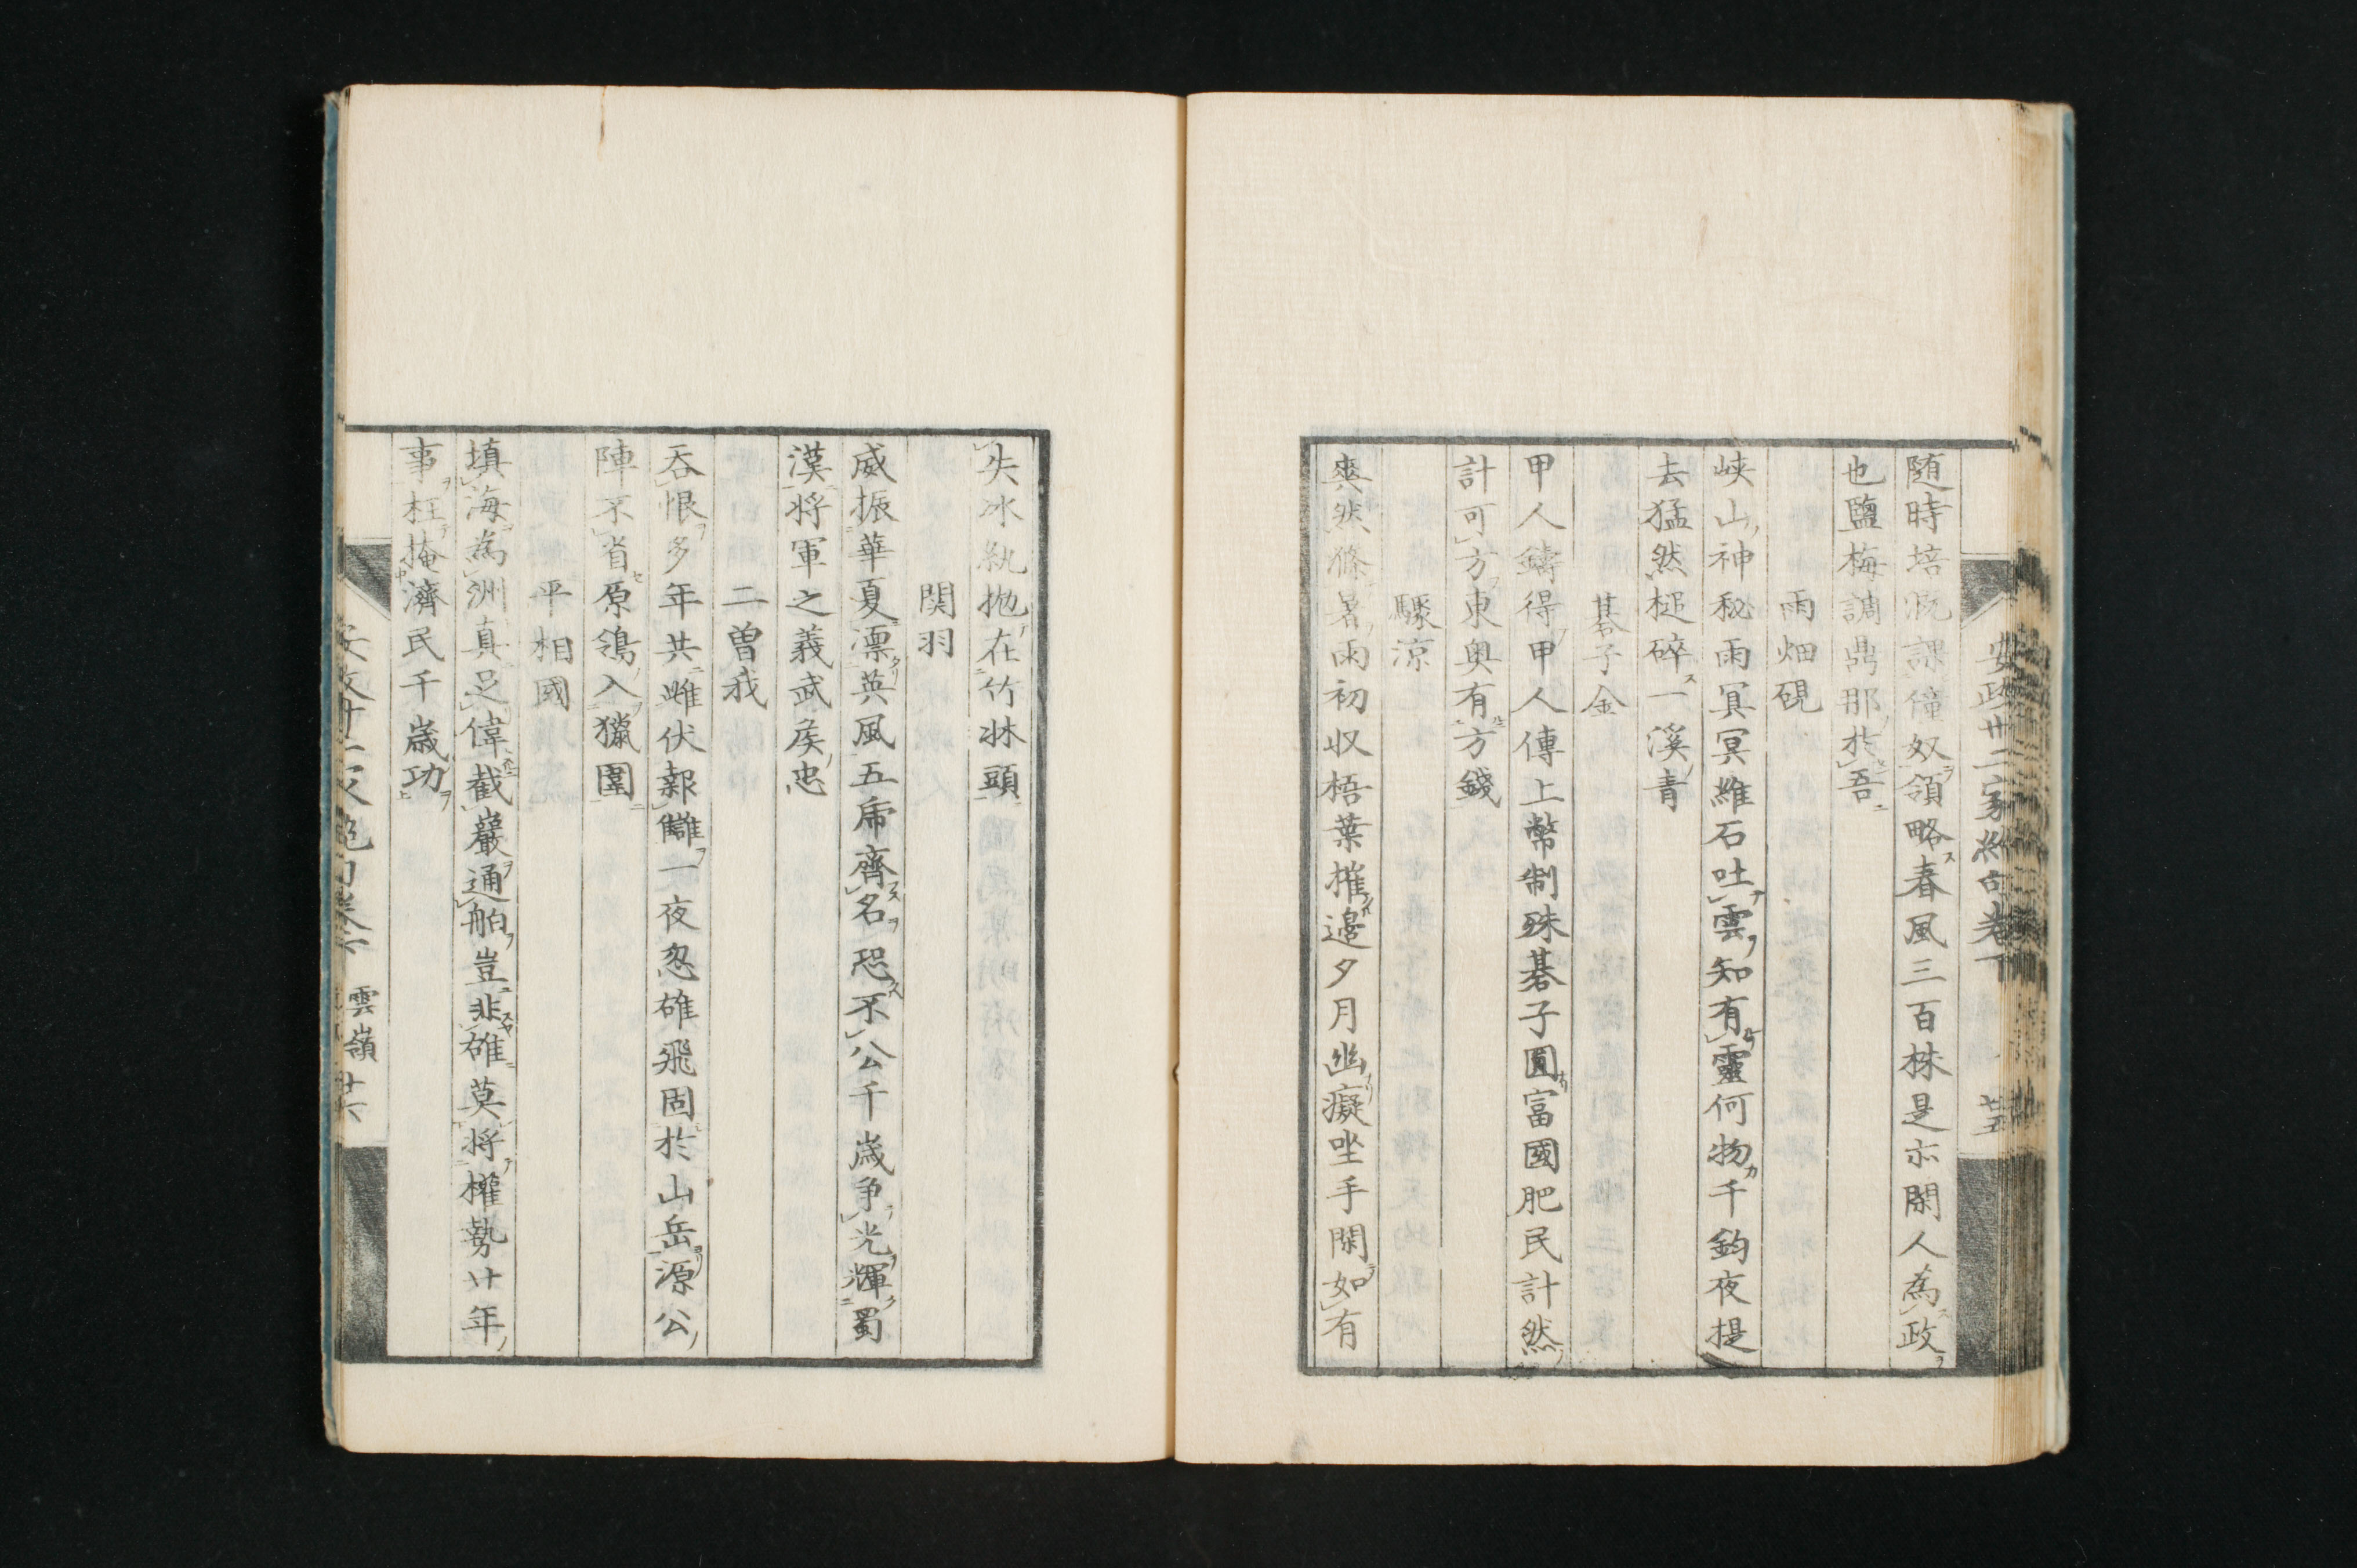 安政廿二家絶句巻下 廿五
随時培漑課僮奴領略春風三百株是亦閑人為政
也鹽梅調鼎那於吾
雨畑硯
峡山神秘雨冥冥維石吐雲知有靈何物千鈞夜提
去猛然槌碎一溪青
碁子金
甲人鑄得甲人傳上幣制殊碁子圓富國肥民計然
計可方東奥有方錢
驟涼
爽然絛暑雨初収梧葉摧邊夕月幽癡坐手閑如有
失冰紈抛在竹牀頭
関羽
威振華夏漂英風五乕齊名恐不公千歳争光輝蜀
漢将軍之義武矦忠
二曽我
呑恨多年共雌伏報讎一夜忽雄飛固於山岳源公
陣不省原鴒入獵圍
平相國
填海為洲真足偉截巖通舶豈非雄莫将權勢廿年
事枉掩濟民千歳功
雲嶺 廿六